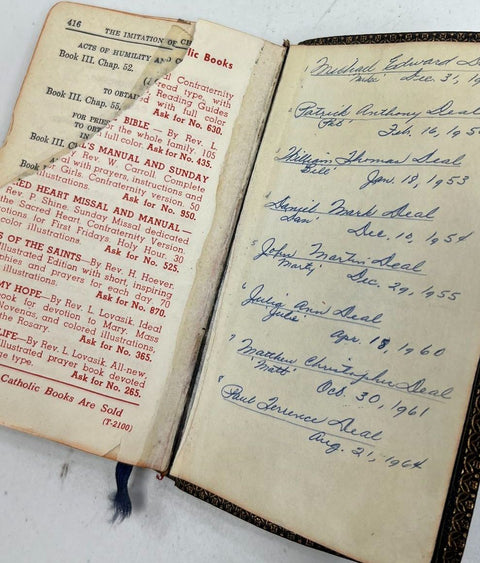 416
THE IMITATION OF CH
ACTS OF HUMILITY AND C
Book III. Chap. 52.
TO OBTAI
Book III. Chap. 55,
FOR PRIES
TO OBT
Book III. C
Book
lic Books
l Confraternity
read type, with
Reading Guides
with full color
Ask for No. 630.
BIBLE — By Rev. L.
the whole family. 105
full color. Ask for No. 435.
L'S MANUAL AND SUNDAY
y Rev. W. Carroll. Complete
al with prayers, instructions and
r Girls. Confraternity version. 50
Ask for No. 950.
RED HEART MISSAL AND MANUAL—
Rev. P. Shine. Sunday Missal dedicated
the Sacred Heart Confraternity Version
otions for First Fridays, Holy Hour. 30
color illustrations. Ask for No. 525.
S OF THE SAINTS—By Rev. H. Hoever.
llustrated Edition with short, inspiring
phies and prayers for each day. 70
illustrations. Ask for No. 870.
MY HOPE—By Rev. L. Lovasik. Ideal
book for devotion to Mary, Mass
Novenas, and colored illustrations,
the Rosary. Ask for No. 365.
LIFE—By Rev. L. Lovasik. All-new,
illustrated prayer book devoted
ge type. Ask for No. 265.
Catholic Books Are Sold
(T-2100)
Michael Edward D
'Mike' Dec. 31, 1
Patrick Anthony Deal
'Pat' Feb. 16, 195
William Thomas Deal
'Bill' Jan. 18, 1953
4 Daniel Mark Deal
'Dan' Dec. 10, 1954
5 John Martin Deal
'Marty' Dec. 29, 1955
6 Julia Ann Deal
'Julie' Apr. 18, 1960
7 Matthew Christopher Deal
'Matt' Oct. 30, 1961
8 Paul Terrence Deal
Aug. 21, 1964